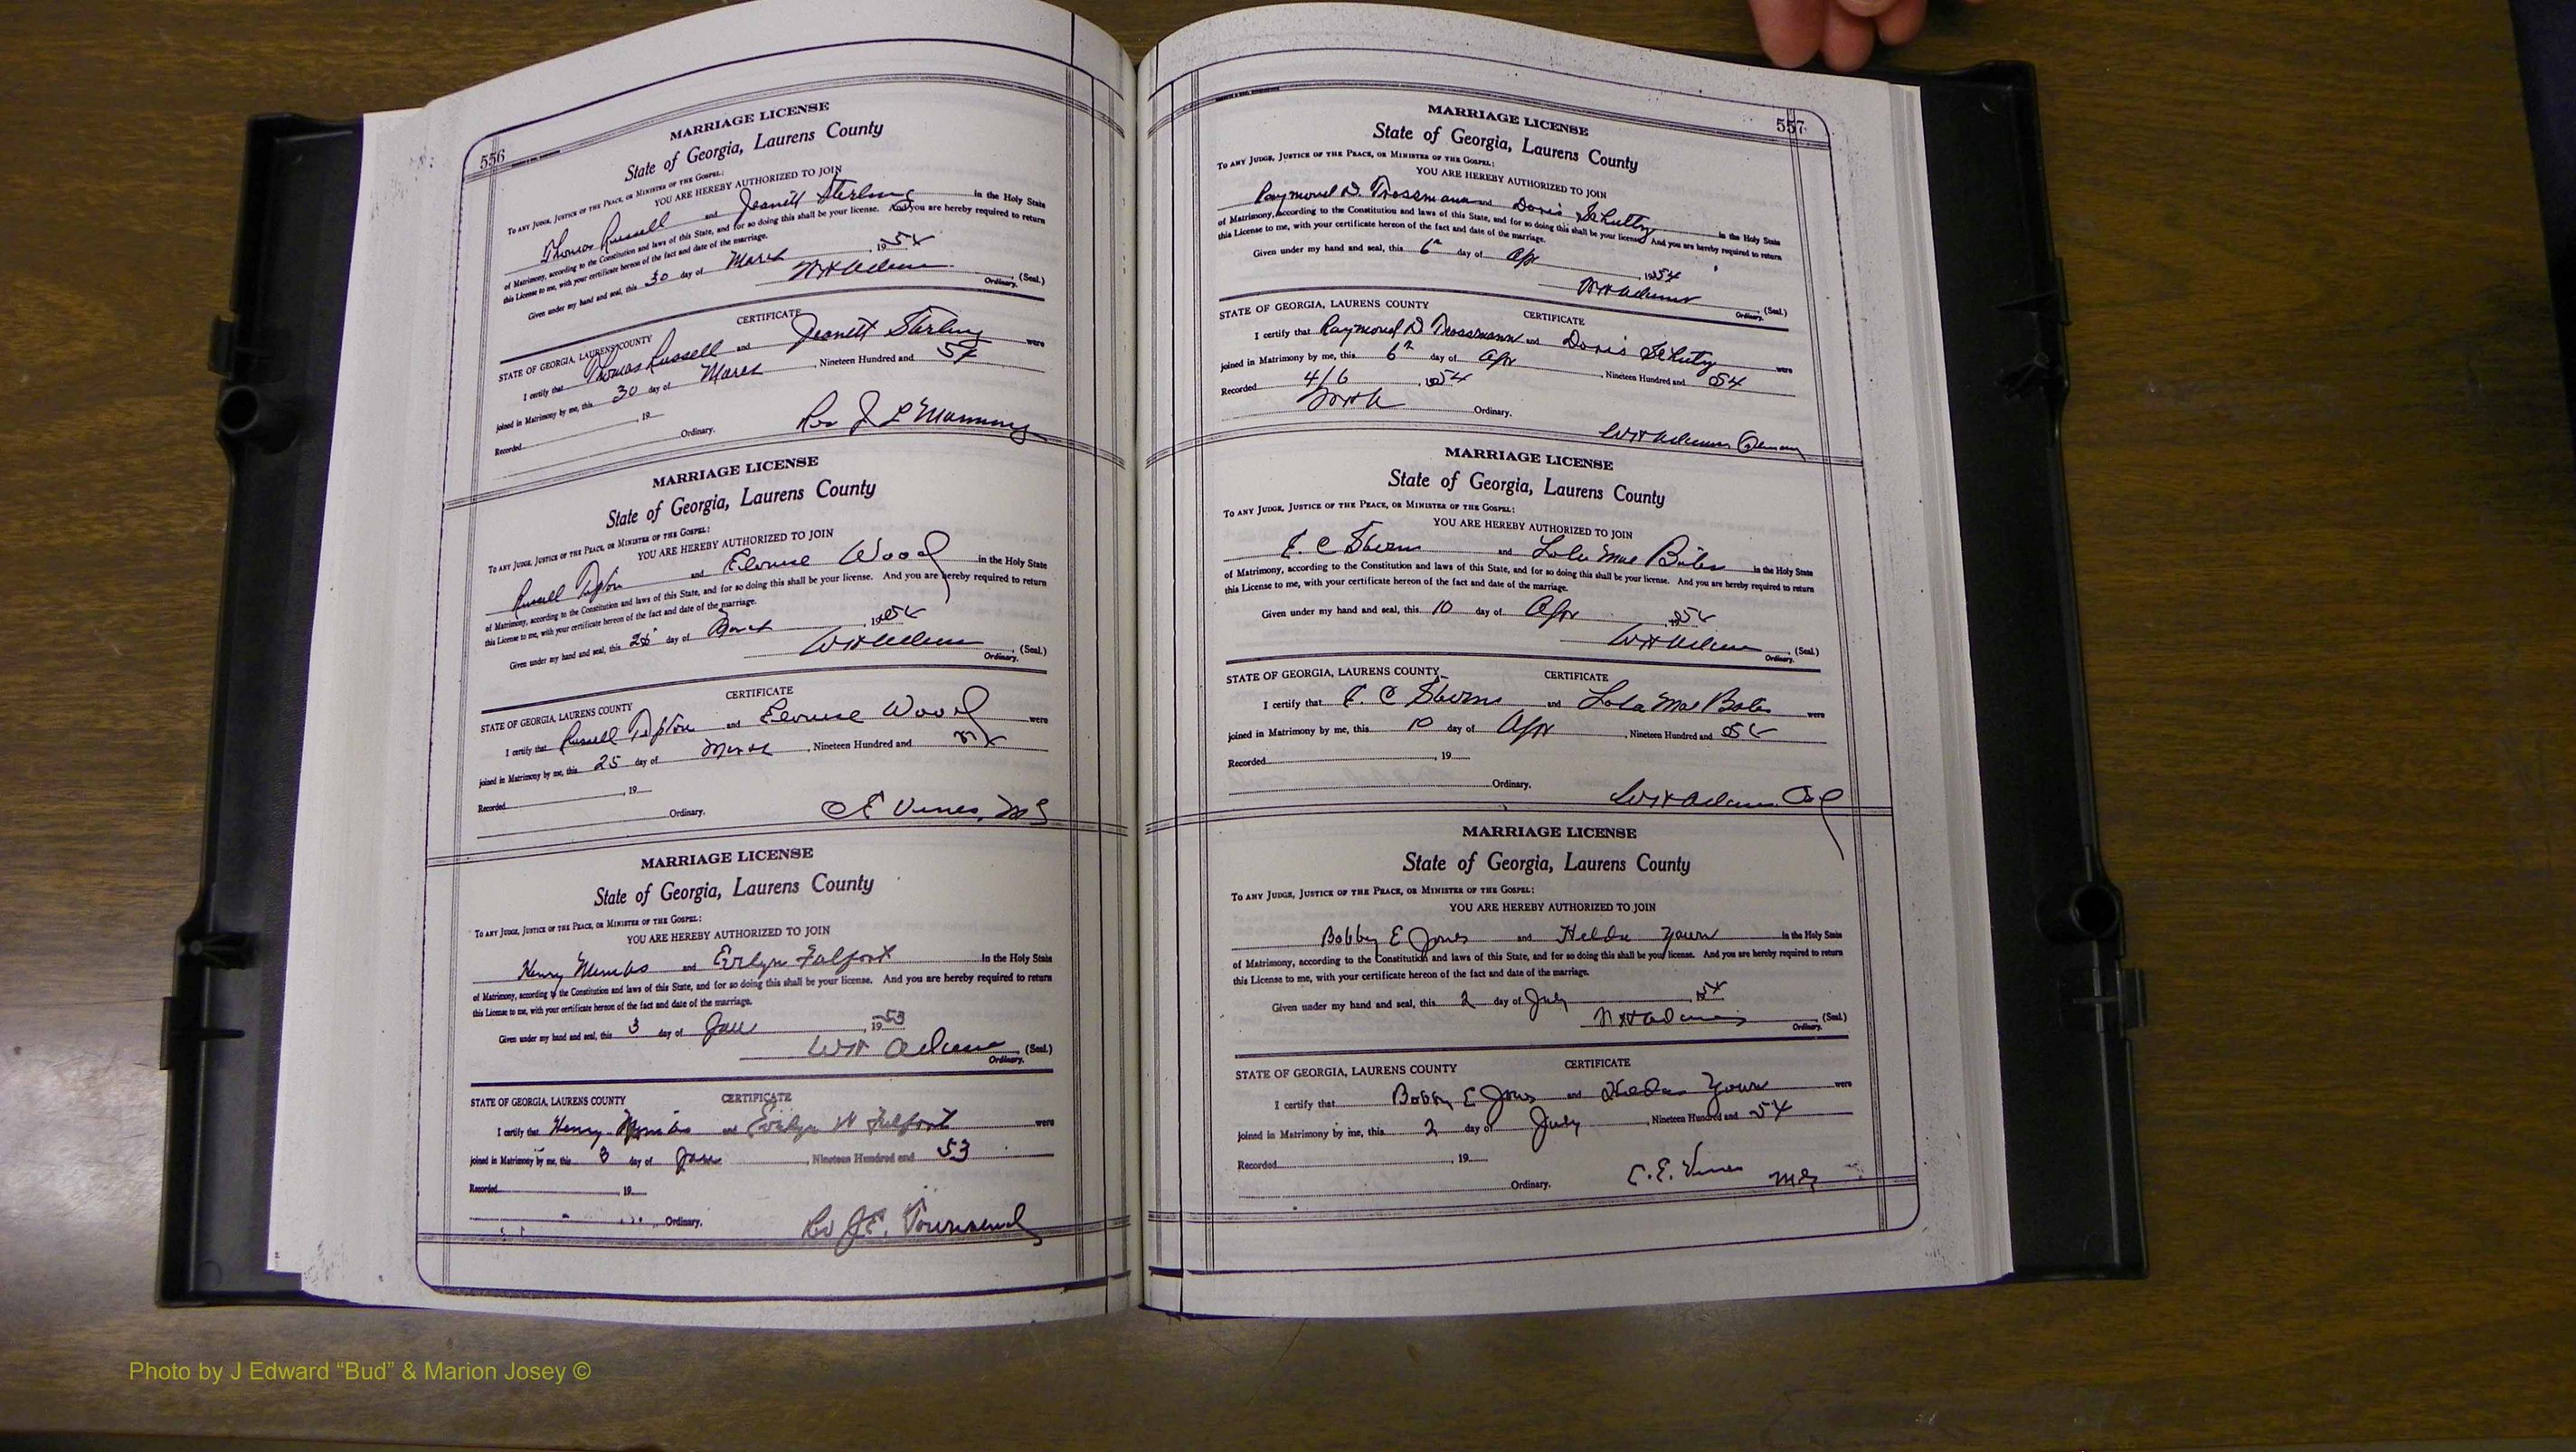 556
MARRIAGE LICENSE
State of Georgia, Laurens County
To any Judge, Justice of the Peace, or Minister of the Gospel:
YOU ARE HEREBY AUTHORIZED TO JOIN
Thomas Russell and Jeanett Sterling in the Holy State
of Matrimony, according to the Constitution and laws of this State, and for so doing this shall be your license. And you are hereby required to return
this License to me, with your certificate hereon of the fact and date of the marriage.
Given under my hand and seal, this 30 day of March, 1954
WH Adams (Seal.)
Ordinary.
CERTIFICATE
STATE OF GEORGIA, LAURENS COUNTY
I certify that Thomas Russell and Jeanett Sterling were
joined in Matrimony by me, this 30 day of March, Nineteen Hundred and 54
Recorded , 19
Ordinary.
Rev J L Manning
MARRIAGE LICENSE
State of Georgia, Laurens County
To any Judge, Justice of the Peace, or Minister of the Gospel:
YOU ARE HEREBY AUTHORIZED TO JOIN
Russell Tipton and Elouise Wood in the Holy State
of Matrimony, according to the Constitution and laws of this State, and for so doing this shall be your license. And you are hereby required to return
this License to me, with your certificate hereon of the fact and date of the marriage.
Given under my hand and seal, this 25 day of March, 1954
WH Adams (Seal.)
Ordinary.
CERTIFICATE
STATE OF GEORGIA, LAURENS COUNTY
I certify that Russell Tipton and Elouise Wood were
joined in Matrimony by me, this 25 day of March, Nineteen Hundred and
Recorded , 19
Ordinary.
C E Vines, MG
MARRIAGE LICENSE
State of Georgia, Laurens County
To any Judge, Justice of the Peace, or Minister of the Gospel:
YOU ARE HEREBY AUTHORIZED TO JOIN
Henry Mimbs and Evelyn Fulford in the Holy State
of Matrimony, according to the Constitution and laws of this State, and for so doing this shall be your license. And you are hereby required to return
this License to me, with your certificate hereon of the fact and date of the marriage.
Given under my hand and seal, this 3 day of Jan, 1953
WH Adams (Seal.)
Ordinary.
CERTIFICATE
STATE OF GEORGIA, LAURENS COUNTY
I certify that Henry Mimbs and Evelyn Fulford were
joined in Matrimony by me, this 3 day of Jan, Nineteen Hundred and 53
Recorded , 19
Ordinary.
Rev J.E. Townsend
557
MARRIAGE LICENSE
State of Georgia, Laurens County
To any Judge, Justice of the Peace, or Minister of the Gospel:
YOU ARE HEREBY AUTHORIZED TO JOIN
Raymond D. Trossmann and Doris Schultz in the Holy State
of Matrimony, according to the Constitution and laws of this State, and for so doing this shall be your license. And you are hereby required to return
this License to me, with your certificate hereon of the fact and date of the marriage.
Given under my hand and seal, this 6th day of Apr, 1954
WH Adams (Seal.)
Ordinary.
STATE OF GEORGIA, LAURENS COUNTY
CERTIFICATE
I certify that Raymond D Trossmann and Doris were
joined in Matrimony by me, this 6th day of Apr, Nineteen Hundred and 54
Recorded 4/6, 1954
Ordinary.
WH Adams Ordinary
MARRIAGE LICENSE
State of Georgia, Laurens County
To any Judge, Justice of the Peace, or Minister of the Gospel:
YOU ARE HEREBY AUTHORIZED TO JOIN
E. C and Lola Mae in the Holy State
of Matrimony, according to the Constitution and laws of this State, and for so doing this shall be your license. And you are hereby required to return
this License to me, with your certificate hereon of the fact and date of the marriage.
Given under my hand and seal, this 10 day of Apr, 1954
WH Adams (Seal.)
Ordinary.
STATE OF GEORGIA, LAURENS COUNTY
CERTIFICATE
I certify that E. C and Lola Mae Bates were
joined in Matrimony by me, this 10 day of Apr, Nineteen Hundred and 54
Recorded , 19
Ordinary.
WH Adams Ord
MARRIAGE LICENSE
State of Georgia, Laurens County
To any Judge, Justice of the Peace, or Minister of the Gospel:
YOU ARE HEREBY AUTHORIZED TO JOIN
Bobby E Jones and Hilda Yawn in the Holy State
of Matrimony, according to the Constitution and laws of this State, and for so doing this shall be your license. And you are hereby required to return
this License to me, with your certificate hereon of the fact and date of the marriage.
Given under my hand and seal, this 2 day of July, 1954
WH Adams (Seal.)
Ordinary.
CERTIFICATE
STATE OF GEORGIA, LAURENS COUNTY
I certify that Bobby E Jones and Hilda Yawn were
joined in Matrimony by me, this 2 day of July, Nineteen Hundred and 54
Recorded , 19
Ordinary.
C.E. Vines MG
Photo by J Edward “Bud” & Marion Josey ©